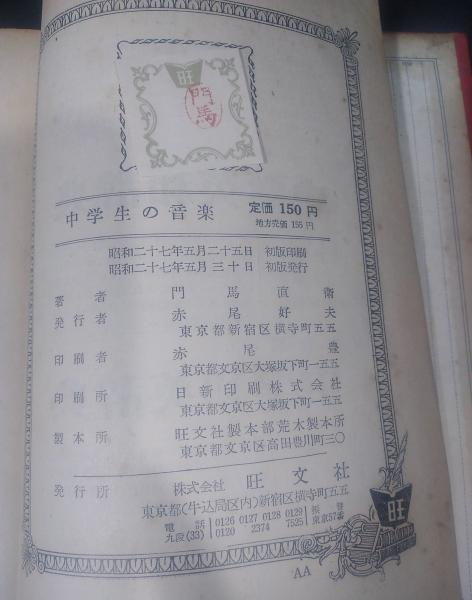 旺
門馬
中学生の音楽 定価 150 円
地方売価 155 円
昭和二十七年五月二十五日 初版印刷
昭和二十七年五月三十日 初版発行
著者 門馬直衛
発行者 赤尾好夫
東京都新宿区横寺町五五
印刷者 赤尾豊
東京都文京区大塚坂下町一五五
印刷所 日新印刷株式会社
東京都文京区大塚坂下町一五五
製本所 旺文社製本部荒木製本所
東京都文京区高田豊川町三〇
発行所 株式会社 旺文社
東京都(牛込局区内)新宿区横寺町五五
電話 九段(33) 0126 0127 0128 0129 振替
0120 2374 7525 東京57番
旺
AA